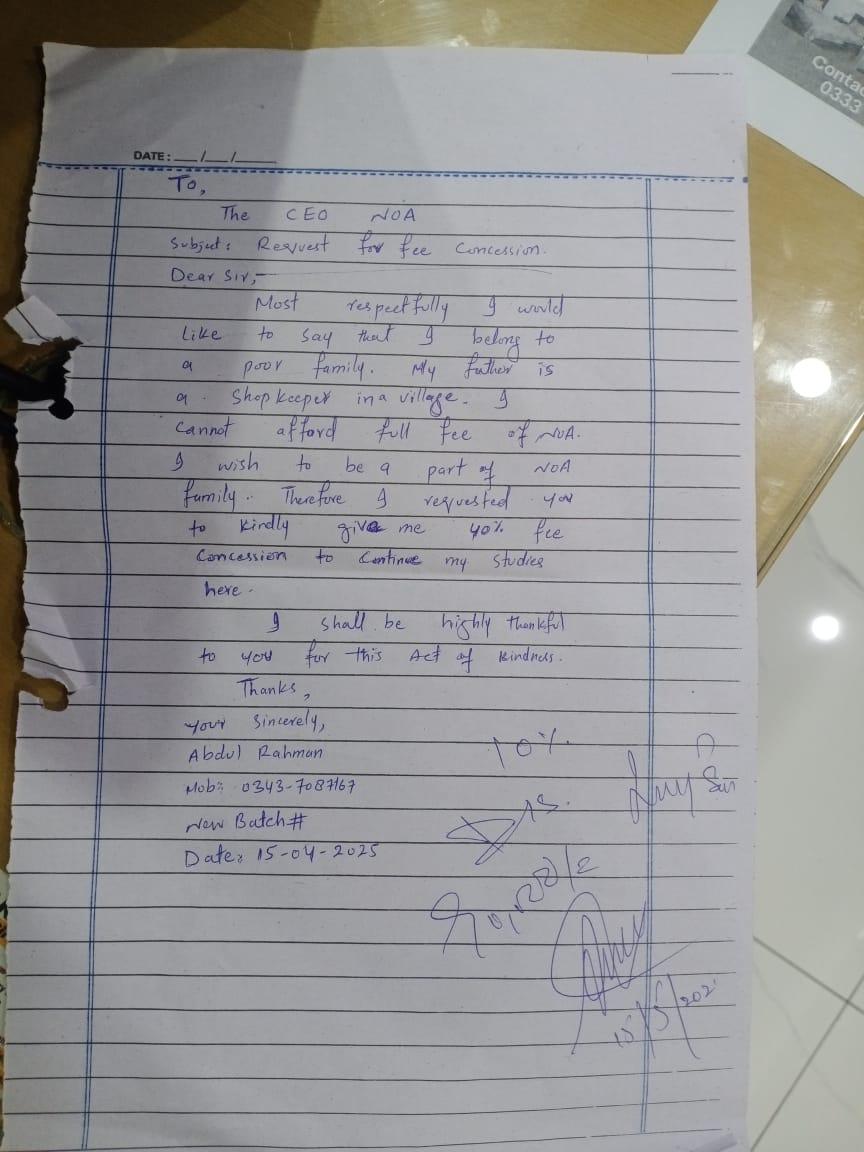 Conta
0333
DATE: __/__/____
To,
The CEO NOA
Subject: Request for fee Concession.
Dear Sir,
Most respectfully I would
Like to say that I belong to
a poor family. My father is
a Shopkeeper in a village. I
Cannot afford full fee of NOA.
I wish to be a part of NOA
family. Therefore I requested you
to kindly give me 40% fee
Concession to Continue my Studies
here.
I shall be highly thankful
to you for this Act of Kindness.
Thanks,
your Sincerely,
Abdul Rahman
Mob: 0343-7087167
New Batch#
Date: 15-04-2025
10%
Dis.
Sir
15/5/202